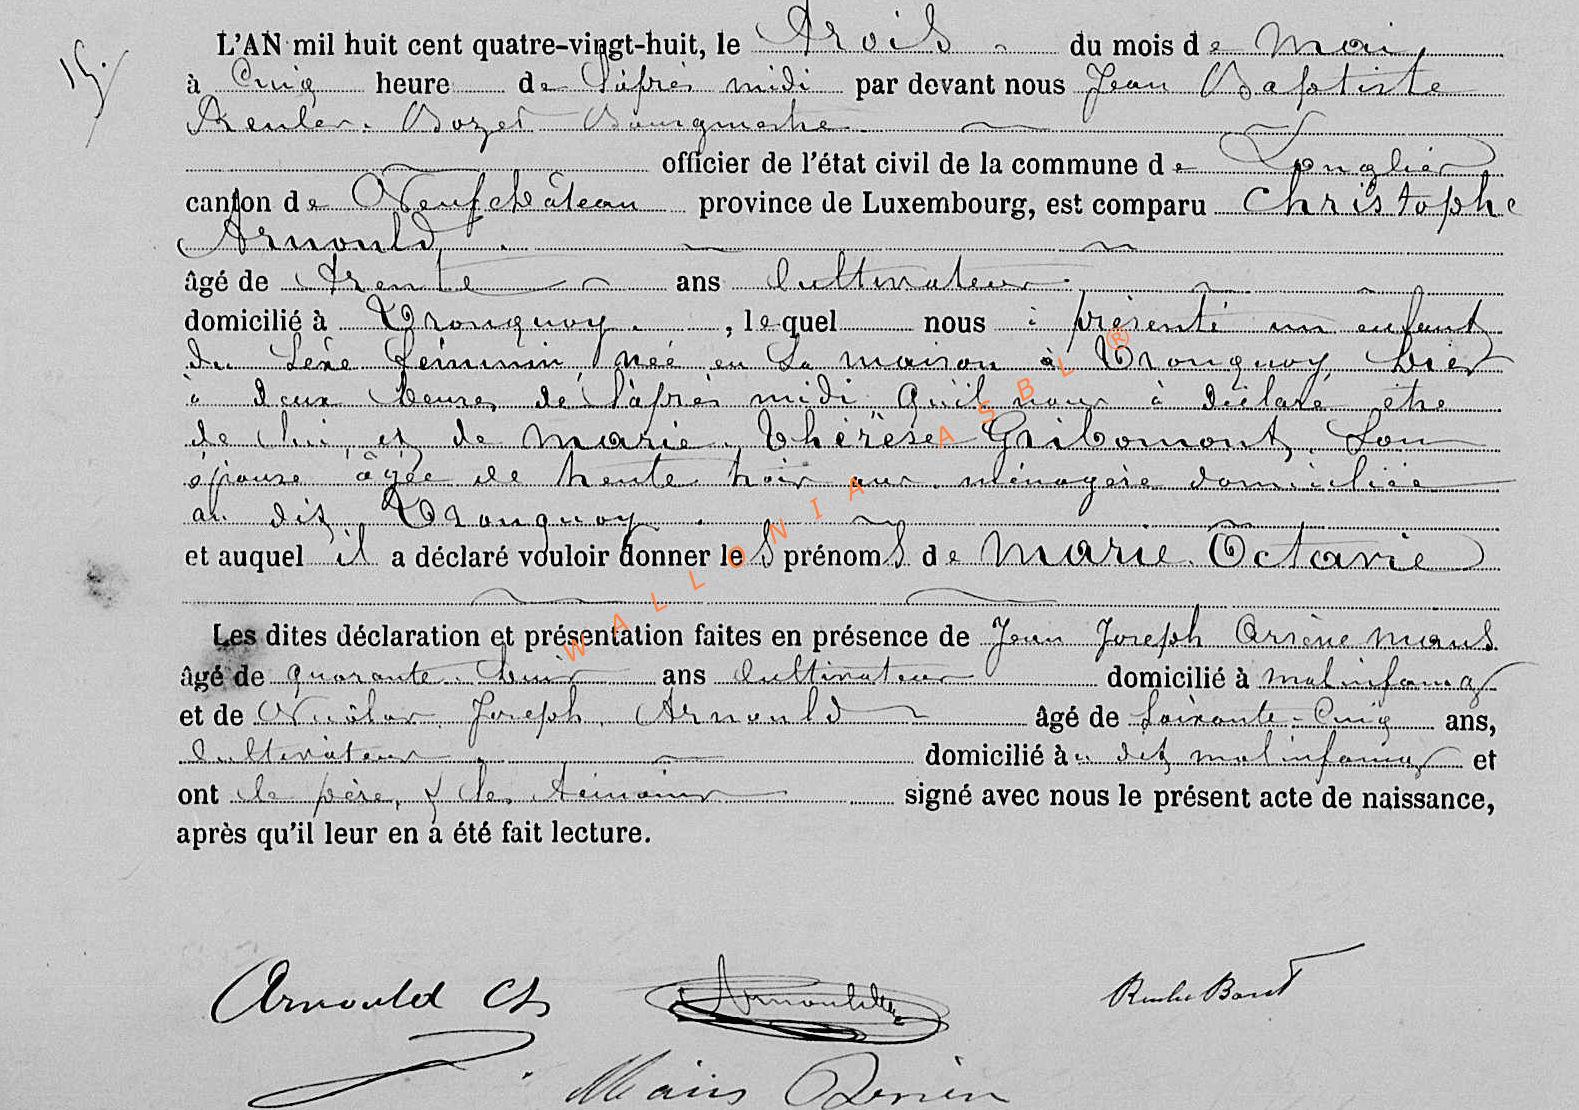 15.
L'AN mil huit cent quatre-vingt-huit, le Trois du mois de Mai
à Cinq heure de l'après midi par devant nous Jean Baptiste
Bozet Bourgmestre
officier de l'état civil de la commune de Longlier
canton de Neufchâteau province de Luxembourg, est comparu Christophe
Arnould
âgé de trente ans Cultivateur
domicilié à Tronquoy, lequel nous à présenté un enfant
du Sexe féminin, née en sa maison à Tronquoy, hier
à deux heures de l'après midi qu'il nous à déclaré être
de lui et de Marie Thérèse Gribomont, Son
épouse âgée de trente trois ans ménagère domiciliée
au dit Tronquoy
et auquel il a déclaré vouloir donner les prénoms de Marie Octavie
Les dites déclaration et présentation faites en présence de Jean Joseph Arsène Maus
âgé de quarante huit ans Cultivateur domicilié à Malinfaing
et de Nicolas Joseph Arnould âgé de Soixante-Cinq ans,
Cultivateur domicilié au dit Malinfaing et
ont le père, & les témoins signé avec nous le présent acte de naissance,
après qu'il leur en a été fait lecture.
WALLONIA ASBL ®
Arnould Ch Arnould